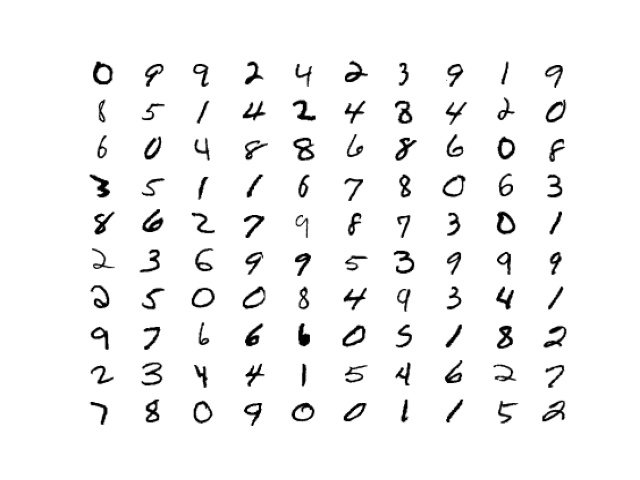 0 9 9 2 4 2 3 9 1 9
8 5 1 4 2 4 8 4 2 0
6 0 4 8 8 6 8 6 0 8
3 5 1 1 6 7 8 0 6 3
8 6 2 7 9 8 7 3 0 1
2 3 6 9 9 5 3 9 9 9
2 5 0 0 8 4 9 3 4 1
9 7 6 6 6 0 5 1 8 2
2 3 4 4 1 5 4 6 2 7
7 8 0 9 0 0 1 1 5 2